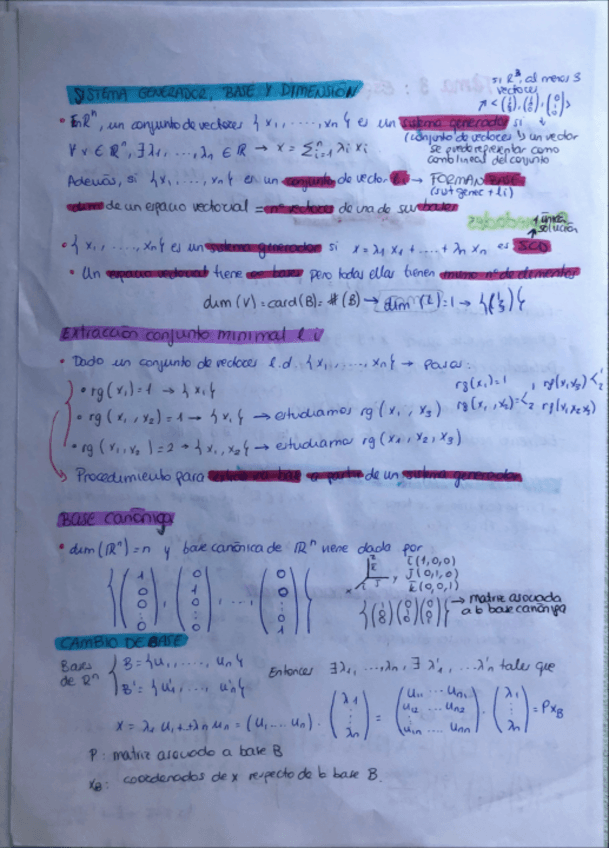 SISTEMA GENERADOR, BASE Y DIMENSIÓN
si R³, al menos 3 vectores
• En Rⁿ, un conjunto de vectores {x₁, ....., xₙ} es un sistema generador si
∀ x ∈ Rⁿ, ∃ λ₁, ..., λₙ ∈ R → x = Σⁿᵢ₌₁ λᵢ xᵢ
(conjunto de vectores) un vector
se puede representar como
comb lineal del conjunto
Además, si {x₁, ....., xₙ} es un conjunto de vector li → FORMAN BASE
(sist gener + li)
dim de un espacio vectorial = nº vectores de una de sus bases
única solución
• {x₁, ....., xₙ} es un sistema generador si x = λ₁ x₁ + .... + λₙ xₙ es SCD
• Un espacio vectorial tiene ∞ bases, pero todas ellas tienen mismo nº de elementos
dim (V) = card(B) = #(B) → dim (L) = 1 →
Extracción conjunto minimal l i
• Dado un conjunto de vectores l.d. {x₁, ....., xₙ} → Pasos:
• rg(x₁) = 1 → {x₁}
rg(x₁) = 1
• rg(x₁, x₂) = 1 → {x₁} → estudiamos rg(x₁, x₃)
• rg(x₁, x₂) = 2 → {x₁, x₂} → estudiamos rg(x₁, x₂, x₃)
Procedimiento para extraer una base a partir de un sistema generador
Base canónica
• dim(Rⁿ) = n y base canónica de Rⁿ viene dada por
i (1,0,0)
j (0,1,0)
k (0,0,1)
{(1 0 0 ⋮ 0), (0 1 0 ⋮ 0), ..., (0 0 0 ⋮ 1)}
{(1 0 0)(0 1 0)(0 0 1)} → matriz asociada
a la base canónica
CAMBIO DE BASE
Bases de Rⁿ
B = {u₁, ....., uₙ}
B' = {u'₁, ...., u'ₙ}
Entonces ∃ λ₁, ..., λₙ, ∃ λ'₁, ... λ'ₙ tales que
x = λ₁ u₁ + ... + λₙ uₙ = (u₁ ... uₙ) · (λ₁ ⋮ λₙ) = (u₁₁ ... uₙ₁ u₁₂ ... uₙ₂ u₁ₙ ... uₙₙ) · (λ₁ ⋮ λₙ) = P x_B
P: matriz asociada a base B
x_B: coordenadas de x respecto de la base B.